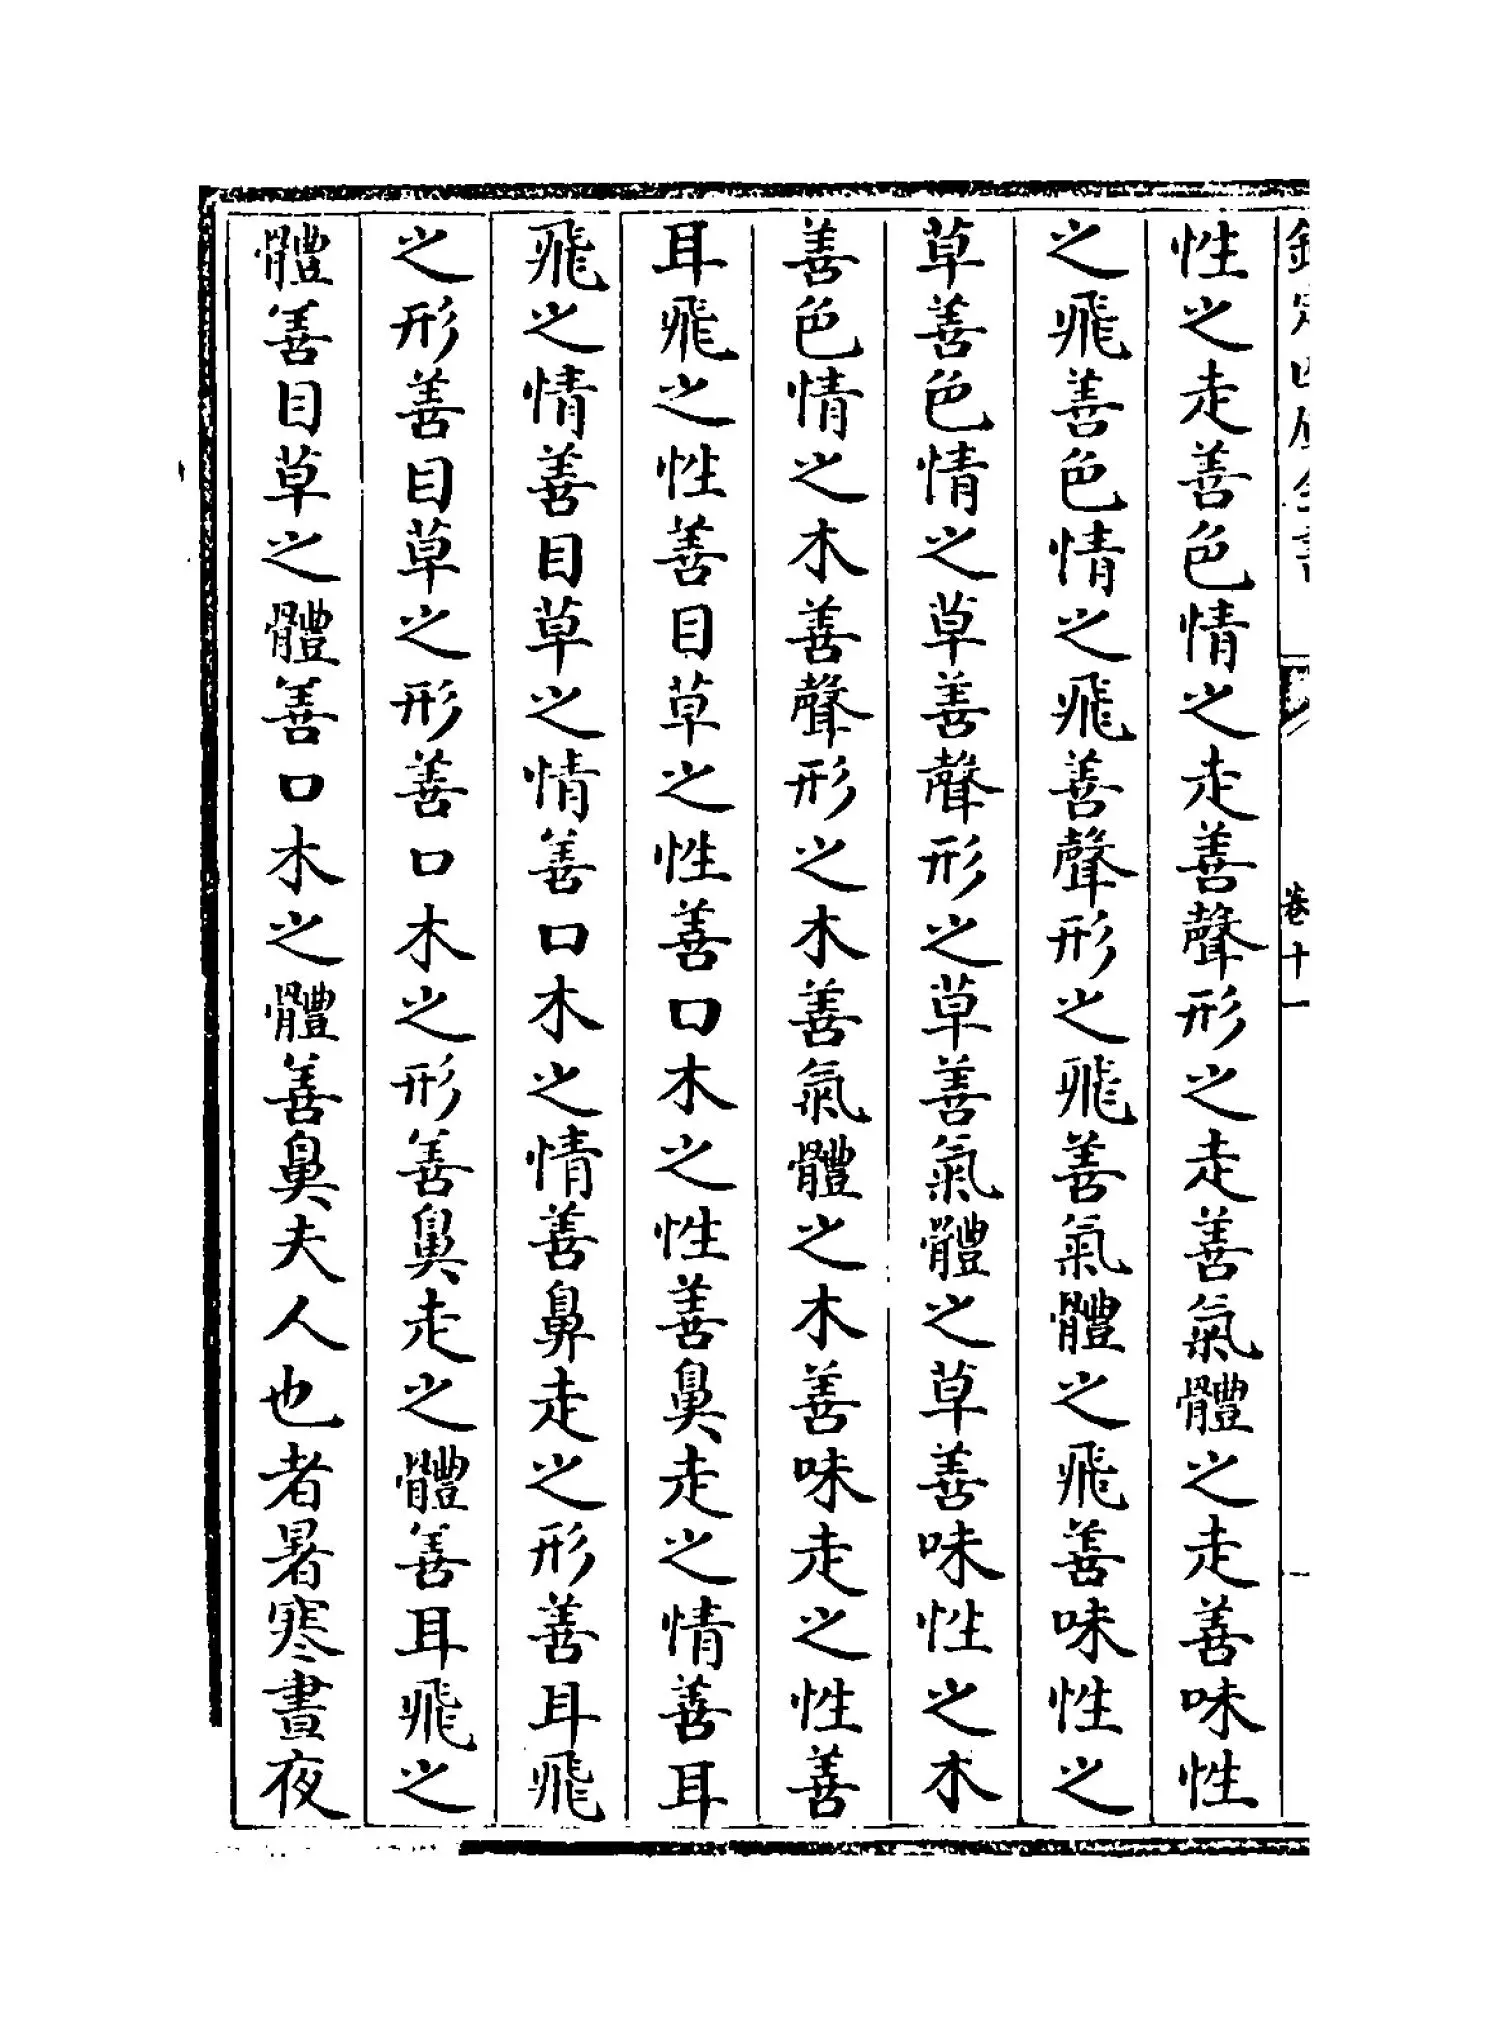 欽定四庫全書
卷十一
性之走善色情之走善聲形之走善氣體之走善味性
之飛善色情之飛善聲形之飛善氣體之飛善味性之
草善色情之草善聲形之草善氣體之草善味性之木
善色情之木善聲形之木善氣體之木善味走之性善
耳飛之性善目草之性善口木之性善鼻走之情善耳
飛之情善目草之情善口木之情善鼻走之形善耳飛
之形善目草之形善口木之形善鼻走之體善耳飛之
體善目草之體善口木之體善鼻夫人也者暑寒晝夜